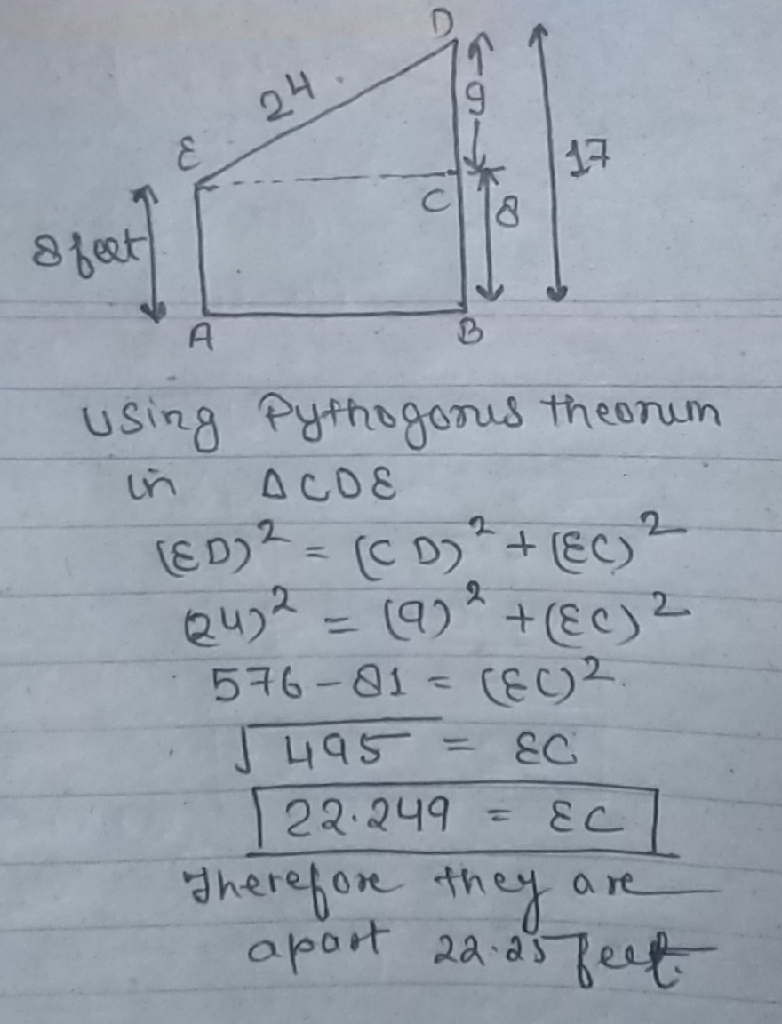 D
24.
9
E
17
C
8
8 feet
A
B
using Pythogorus theorum
in ΔCDE
(ED)² = (CD)² + (EC)²
(24)² = (9)² + (EC)²
576 - 81 = (EC)².
√495 = EC
22.249 = EC
Therefore they are
apart 22.25 feet.